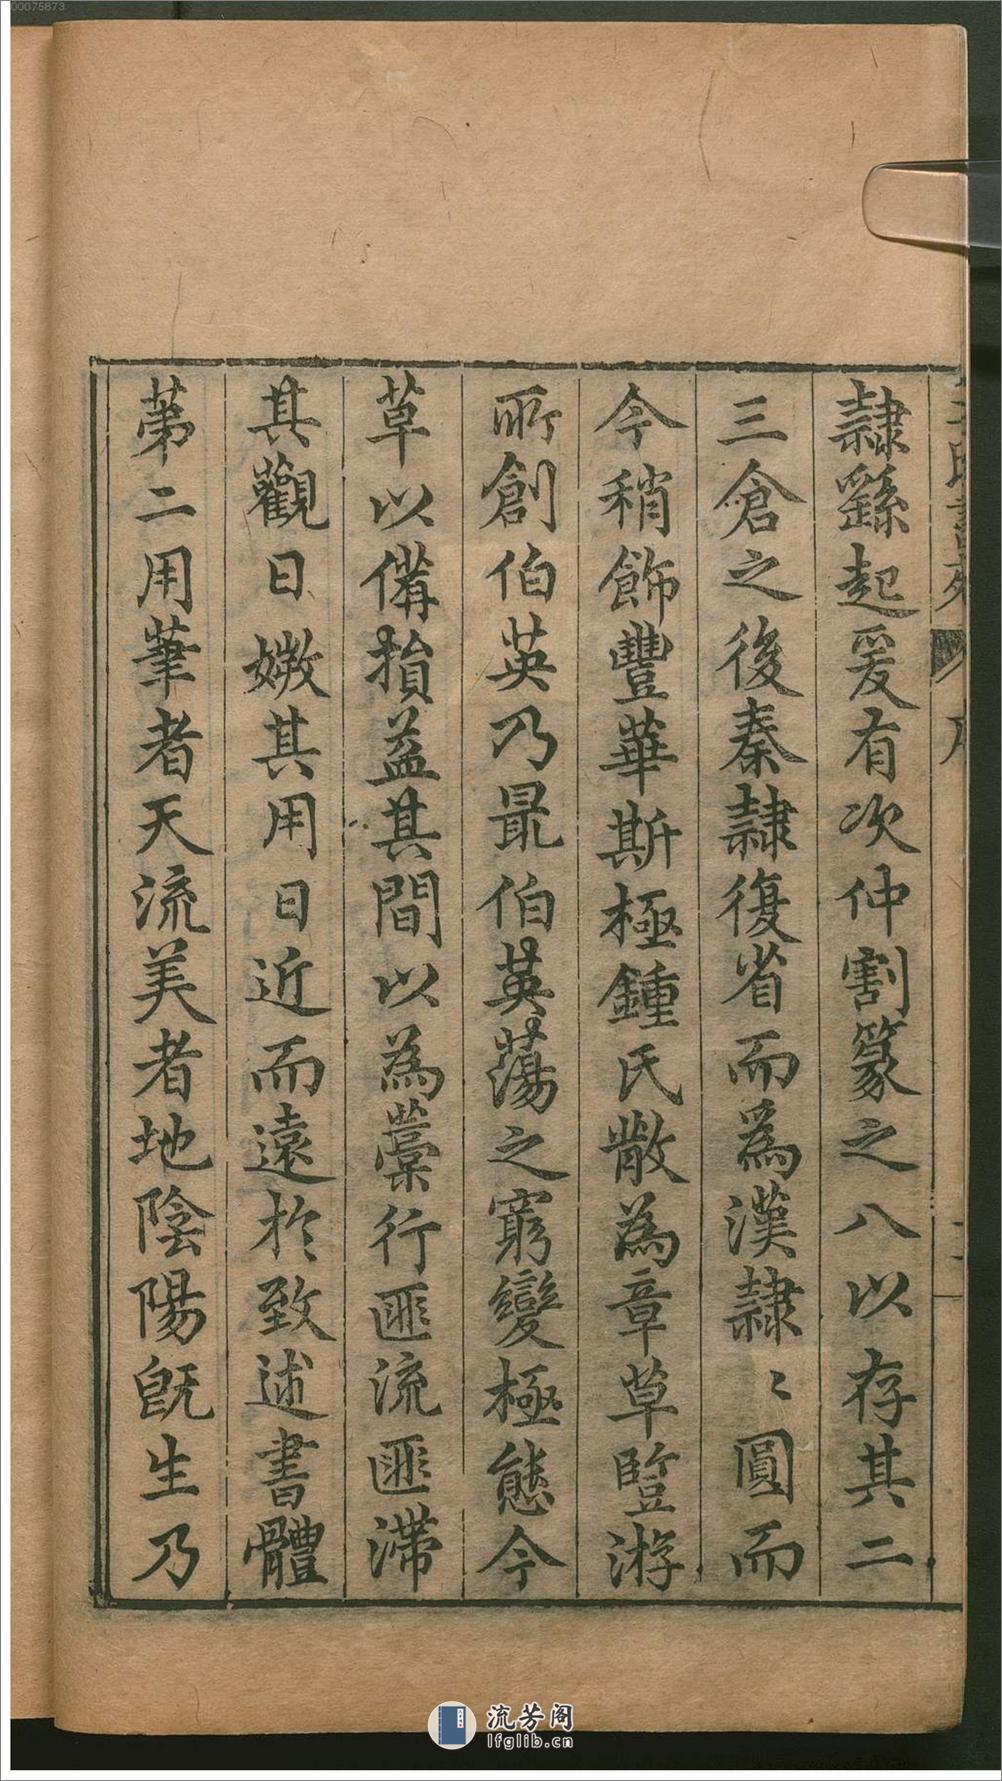 00075873
王氏書苑 序 二
隸繇起爰有次仲割篆之八以存其二
三倉之後秦隸復省而爲漢隸〻圓而
今稍飾豐華斯極鍾氏散為章草暨游
所創伯英乃最伯英蕩之窮變極態今
草以備損益其間以為藁行匪流匪滯
其觀日媺其用日近而遠於致述書體
苐二用筆者天流美者地陰陽旣生乃
流芳阁
lfglib.cn